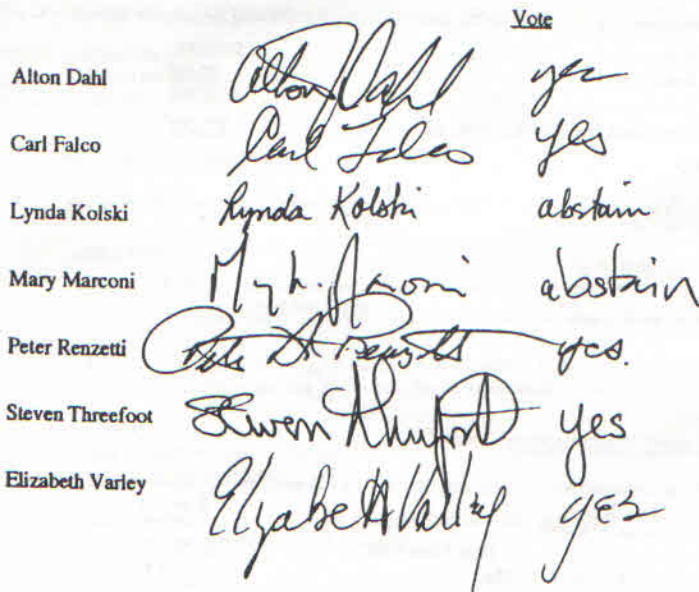 Vote
Alton Dahl Alton Dahl yes
Carl Falco Carl Falco yes
Lynda Kolski Lynda Kolski abstain
Mary Marconi abstain
Peter Renzetti Pete Renzetti yes.
Steven Threefoot Steven Threefoot yes
Elizabeth Varley Elizabeth Varley yes